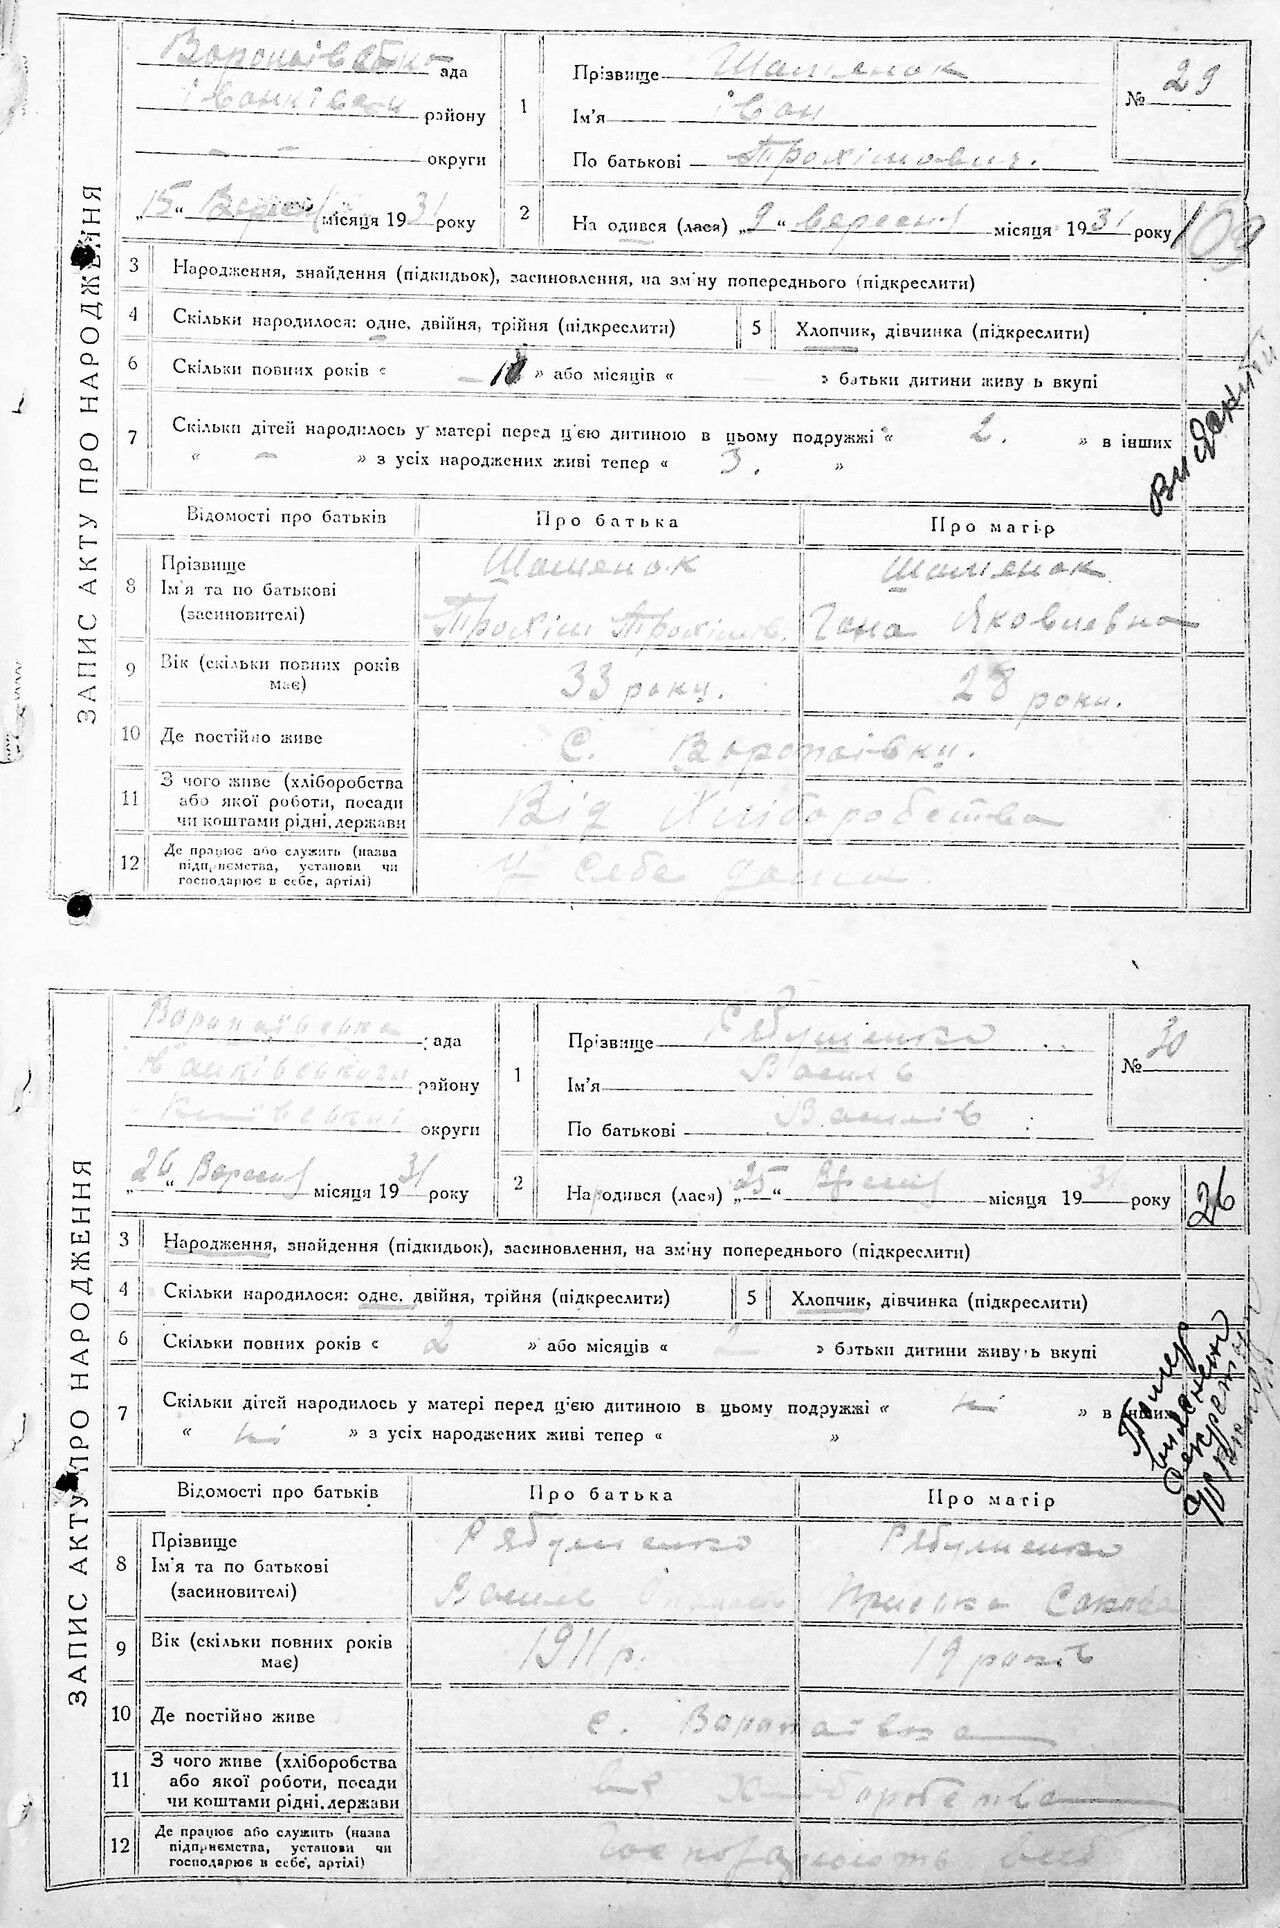 ЗАПИС АКТУ ПРО НАРОДЖЕННЯ
ада
району
округи
„15“ місяця 1931 року
1
Прізвище Шаменок
Ім'я Іван
По батькові Трохімович.
№ 29
2
На одився (лася) „9“ вересня місяця 1931 року
109
3 Народження, знайдення (підкидьок), засиновлення, на зм'ну попереднього (підкреслити)
4 Скільки народилося: одне, двійня, трійня (підкреслити)
5 Хлопчик, дівчинка (підкреслити)
6 Скільки повних років « » або місяців « – » батьки дитини живу ь вкупі
7 Скільки дітей народилось у матері перед ц'єю дитиною в цьому подружжі « 2. » в інших
« – » з усіх народжених живі тепер « 3. »
Відомості про батьків Про батька Про матір
8 Прізвище Шаменок Шаменок
Ім'я та по батькові
(засиновителі) Трохім Трохімов. Гана Яковлевна
9 Вік (скільки повних років має) 33 роки. 28 роки.
10 Де постійно живе С. Воропаївці.
11 З чого живе (хліборобства
або якої роботи, посади
чи коштами рідні, держави Від Хліборобства
12 Де працює або служить (назва
підприємства, установи чи
господарює в себе, артілі) У себе дома
ЗАПИС АКТУ ПРО НАРОДЖЕННЯ
ада
району
округи
місяця 1931 року
1
Прізвище Рябушенко
Ім'я Василь
По батькові Василів
№ 30
2
Народився (лася) „25“ місяця 1931 року
26
3 Народження, знайдення (підкидьок), засиновлення, на зміну попереднього (підкреслити)
4 Скільки народилося: одне, двійня, трійня (підкреслити)
5 Хлопчик, дівчинка (підкреслити)
6 Скільки повних років « 2 » або місяців « 2 » батьки дитини живуь вкупі
7 Скільки дітей народилось у матері перед ц'єю дитиною в цьому подружжі « ні » в інших
« ні » з усіх народжених живі тепер « »
Відомості про батьків Про батька Про матір
8 Прізвище Рябушенко Рябушенко
Ім'я та по батькові
(засиновителі) Василь
9 Вік (скільки повних років має) 1911 р. 19 років
10 Де постійно живе с. Воропаївка
11 З чого живе (хліборобства
або якої роботи, посади
чи коштами рідні, держави Хліборобства
12 Де працює або служить (назва
підприємства, установи чи
господарює в себе, артілі)